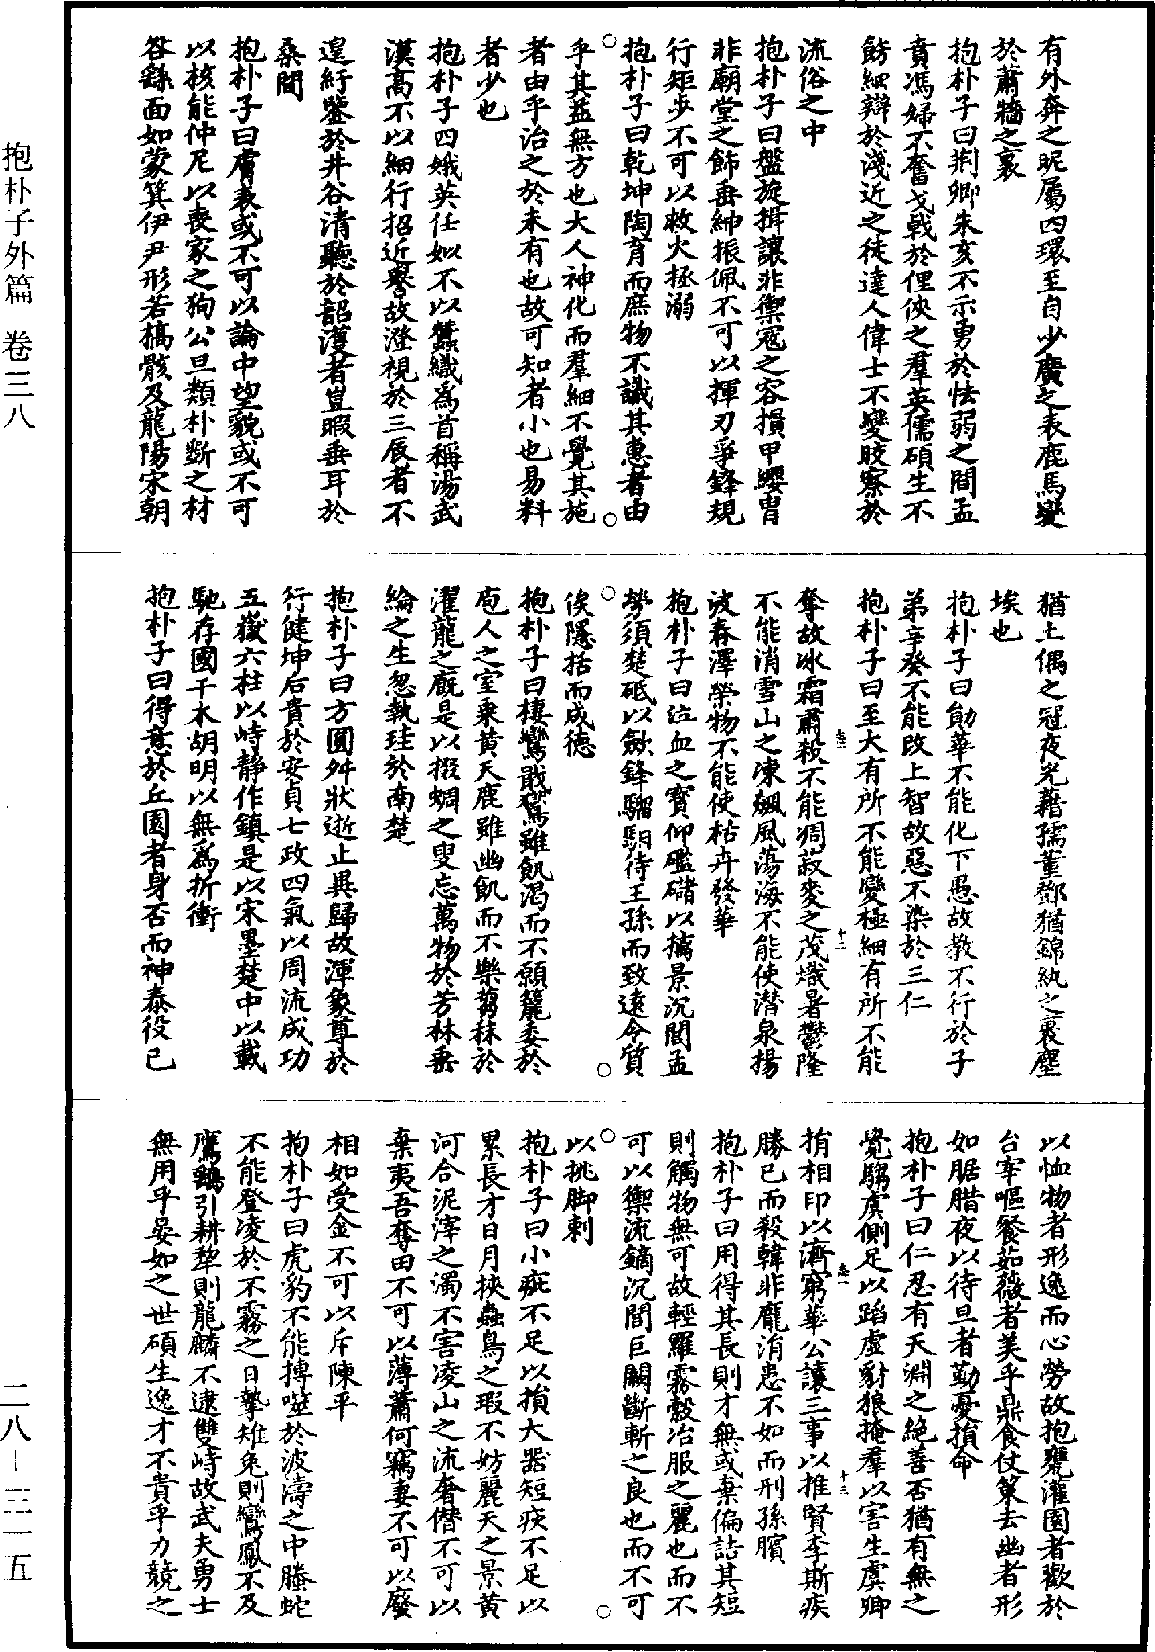 有外奔之昵屬四環至自少廣之表鹿馬變
於蕭牆之裏
抱朴子曰荆卿朱亥不示勇於怯弱之間孟
賁馮婦不奮戈戟於俚俠之羣英儒碩生不
飾細辯於淺近之徒達人偉士不變皎察於
流俗之中
抱朴子曰盤旋揖讓非禦寇之容摜甲纓胄
非廟堂之飾垂紳振佩不可以揮刃爭鋒規
行矩步不可以救火拯溺
抱朴子曰乾坤陶育而庶物不識其惠者由
乎其益無方也大人神化而羣細不覺其施
者由乎治之於未有也故可知者小也易料
者少也
抱朴子四娥英任姒不以蠶織爲首稱湯武
漢高不以細行招近譽故澄視於三辰者不
遑紆鑒於井谷清聽於韶濩者豈暇垂耳於
桑間
抱朴子曰膚表或不可以論中望貌或不可
以核能仲尼以喪家之狗公旦類朴斲之材
咎繇面如蒙箕伊尹形若槁骸及龍陽宋朝
猶土偶之冠夜光藉孺董鄧猶錦紈之裹塵
埃也
抱朴子曰勛華不能化下愚故教不行於子
弟辛癸不能改上智故惡不染於三仁
抱朴子曰至大有所不能變極細有所不能
奪故冰霜肅殺不能凋菽麥之茂熾暑鬱隆
不能消雪山之凍飆風蕩海不能使潛泉揚
波春澤榮物不能使枯卉發華
抱朴子曰泣血之寶仰礛䃴以摛景沉閭孟
勞須楚砥以斂鋒騮駬待王孫而致遠令質
俟隱括而成德
抱朴子曰棲鸞戢鷟雖飢渴而不願籠委於
庖人之室乗黃天鹿雖幽飢而不樂蒭秣於
濯龍之廐是以掇蜩之叟忘萬物於芳林垂
綸之生忽執珪於南楚
抱朴子曰方圓舛狀逝止異歸故渾象尊於
行健坤后貴於安貞七政四氣以周流成功
五嶽六柱以峙静作鎮是以宋墨楚申以載
馳存國干木胡明以無爲折衝
抱朴子曰得意於丘園者身否而神泰役己
以恤物者形逸而心勞故抱甕灌園者歡於
台宰嘔餐茹薇者美乎鼎食仗策去幽者形
如腒腊夜以待旦者勤憂損命
抱朴子曰仁忍有天淵之絶善否猶有無之
覺騶虞側足以蹈虛豺狼掩羣以害生虞卿
捐相印以濟窮華公讓三事以推賢李斯疾
勝己而殺韓非龐涓患不如而刑孫臏
抱朴子曰用得其長則才無或棄偏詰其短
則觸物無可故輕羅霧縠冶服之麗也而不
可以禦流鏑沉閭巨闕斷斬之良也而不可
以挑脚刺
抱朴子曰小疵不足以損大器短疾不足以
累長才日月挾蟲鳥之瑕不妨麗天之景黃
河合泥滓之濁不害凌山之流奢僣不可以
棄夷吾奪田不可以薄蕭何竊妻不可以廢
相如受金不可以斥陳平
抱朴子曰虎豹不能搏噬於波濤之中螣蛇
不能登凌於不霧之日摯雉兔則鸞鳳不及
鷹鷂引耕犂則龍麟不逮雙峙故武夫勇士
無用乎晏如之世碩生逸才不貴乎力競之
志二
十二
志一
十三
抱朴子外篇 卷三八
二八—三一五